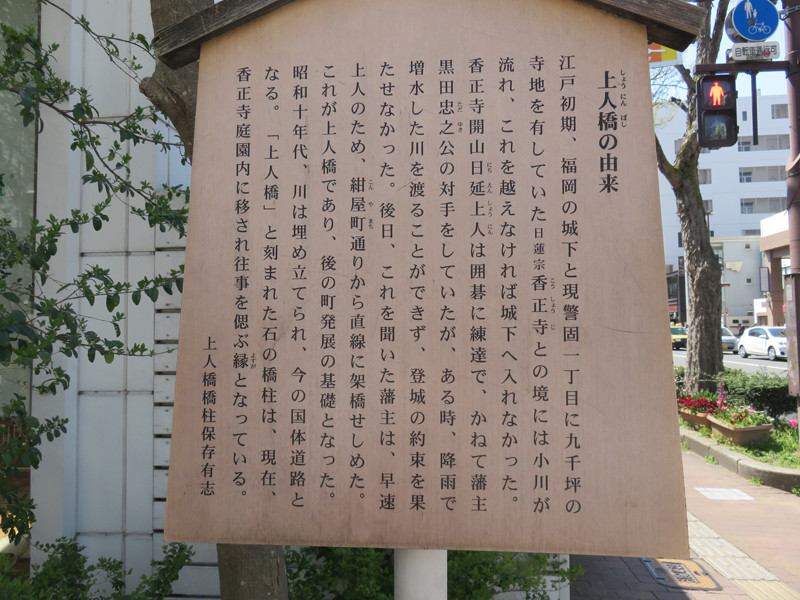 上人橋の由来
江戸初期、福岡の城下と現警固一丁目に九千坪の
寺地を有していた日蓮宗香正寺との境には小川が
流れ、これを越えなければ城下へ入れなかった。
香正寺開山日延上人は囲碁に練達で、かねて藩主
黒田忠之公の対手をしていたが、ある時、降雨で
増水した川を渡ることができず、登城の約束を果
たせなかった。後日、これを聞いた藩主は、早速
上人のため、紺屋町通りから直線に架橋せしめた。
これが上人橋であり、後の町発展の基礎となった。
昭和十年代、川は埋め立てられ、今の国体道路と
なる。「上人橋」と刻まれた石の橋柱は、現在、
香正寺庭園内に移され往事を偲ぶ縁となっている。
上人橋橋柱保存有志
自転車通行可